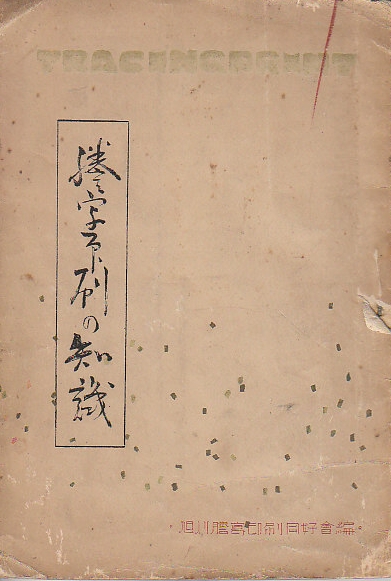 TRACINGPRINT
謄写印刷の知識
旭川謄寫印刷同好會編